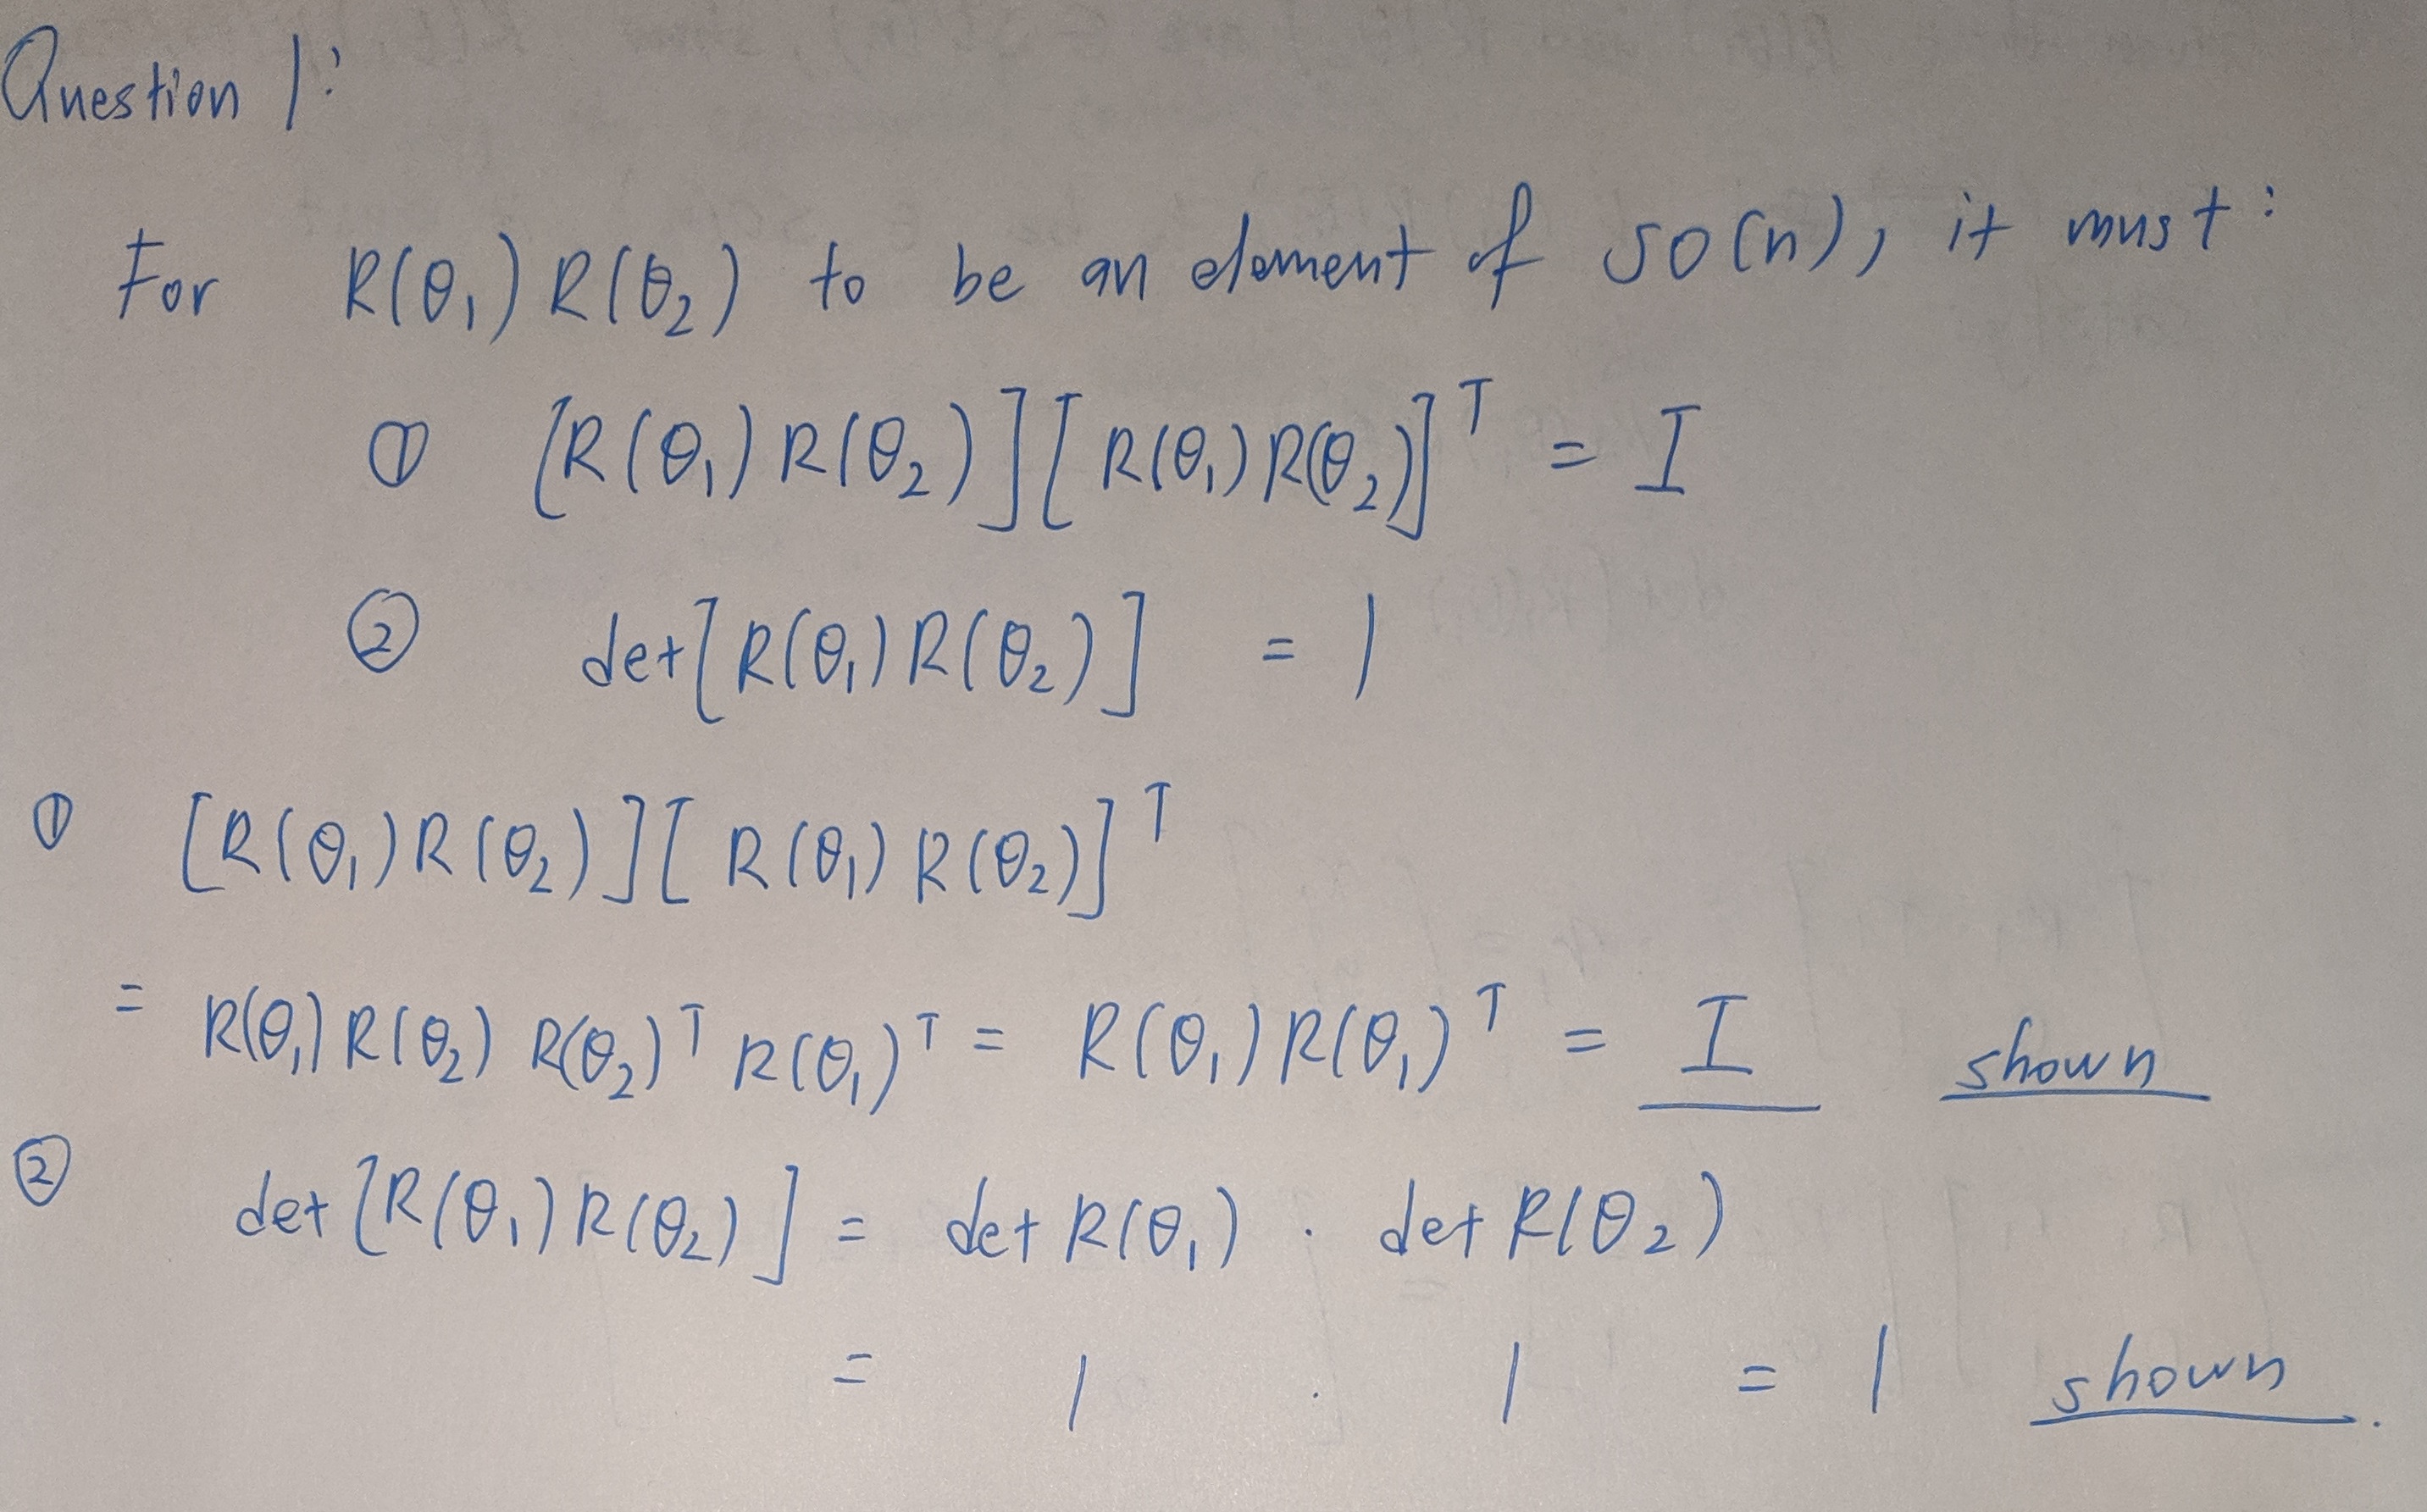 Question 1:
For R(θ₁) R(θ₂) to be an element of SO(n), it must:
① [R(θ₁) R(θ₂)][R(θ₁) R(θ₂)]ᵀ = I
② det[R(θ₁) R(θ₂)] = 1
① [R(θ₁) R(θ₂)][R(θ₁) R(θ₂)]ᵀ
= R(θ₁) R(θ₂) R(θ₂)ᵀ R(θ₁)ᵀ = R(θ₁) R(θ₁)ᵀ = I shown
② det[R(θ₁) R(θ₂)] = det R(θ₁) · det R(θ₂)
= 1 · 1 = 1 shown.